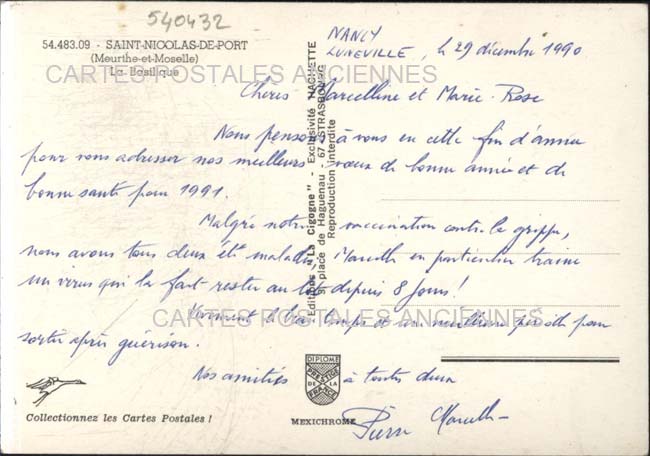 540432
54.483.09 - SAINT-NICOLAS-DE-PORT
(Meurthe-et-Moselle)
La Basilique
CARTES POSTALES ANCIENNES
NANCY
LUNEVILLE, le 29 décembre 1990
Chères Marcelline et Marie-Rose
Nous pensons à vous en cette fin d'année
pour vous adresser nos meilleurs voeux de bonne année et de
bonne santé pour 1991.
Malgré notre vaccination contre la grippe,
nous avons tous deux été malades, Marcelle en particulier traine
un virus qui la fait rester au lit depuis 8 jours!
Vivement le beau temps et un meilleur pour
sortir après guérison.
Nos amitiés à toutes deux
Pierre Marcelle
CARTES POSTALES ANCIENNES
Editions "La Cigogne" - Exclusivité HACHETTE
9, place de Haguenau - 67 - STRASBOURG
Reproduction interdite
DIPLOME
PRESTIGE
DE LA
FRANCE
MEXICHROME
Collectionnez les Cartes Postales !